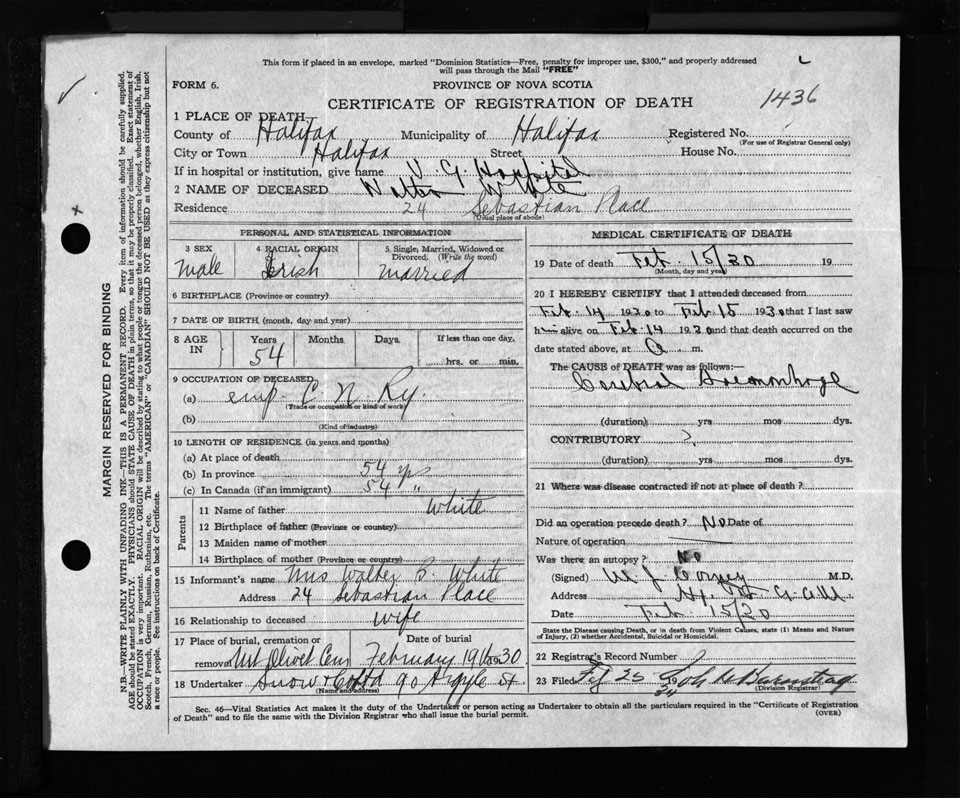 This form if placed in an envelope, marked "Dominion Statistics—Free, penalty for improper use, $300," and properly addressed
will pass through the Mail "FREE"
FORM 6.
PROVINCE OF NOVA SCOTIA
CERTIFICATE OF REGISTRATION OF DEATH
1436
1 PLACE OF DEATH
County of Halifax Municipality of Halifax Registered No.
(For use of Registrar General only)
City or Town Halifax Street House No.
If in hospital or institution, give name V. G. Hospital
2 NAME OF DECEASED Walter White
Residence 24 Sebastian Place
(Usual place of abode)
PERSONAL AND STATISTICAL INFORMATION
3 SEX
Male
4 RACIAL ORIGIN
Irish
5 Single, Married, Widowed or Divorced. (Write the word)
Married
6 BIRTHPLACE (Province or country)
7 DATE OF BIRTH (month, day and year)
8 AGE IN
Years Months Days. If less than one day,
54 hrs. or min.
9 OCCUPATION OF DECEASED
(a) emp. C N Ry.
(Trade or occupation or kind of work)
(b)
(Kind of industry)
10 LENGTH OF RESIDENCE (in years and months)
(a) At place of death
(b) In province 54 yrs
(c) In Canada (if an immigrant) 54 "
Parents
11 Name of father White
12 Birthplace of father (Province or country)
13 Maiden name of mother
14 Birthplace of mother (Province or country)
15 Informant's name Mrs Walter B. White
Address 24 Sebastian Place
16 Relationship to deceased wife
17 Place of burial, cremation or Date of burial
removal Mt Olivet Cem February 19 30
18 Undertaker Snow & Co Ltd 90 Argyle St
(Name and address)
MEDICAL CERTIFICATE OF DEATH
19 Date of death Feb. 15/30 19
(Month, day and year)
20 I HEREBY CERTIFY that I attended deceased from
Feb. 14 1930 to Feb 15 1930 that I last saw
him alive on Feb 14 1930 and that death occurred on
date stated above, at a. m.
The CAUSE of DEATH was as follows:—
Cerebral Haemorrhage
(duration) yrs mos dys.
CONTRIBUTORY ?
(duration) yrs mos dys.
21 Where was disease contracted if not at place of death?
Did an operation precede death? No Date of
Nature of operation
Was there an autopsy? No
(Signed) W. J. M.D.
Address
Date Feb 15/30
State the Disease causing Death, or in death from Violent Causes, state (1) Means and Nature
of Injury, (2) whether Accidental, Suicidal or Homicidal.
22 Registrar's Record Number
23 Filed
(Division Registrar)
Sec. 46—Vital Statistics Act makes it the duty of the Undertaker or person acting as Undertaker to obtain all the particulars required in the "Certificate of Registration
of Death" and to file the same with the Division Registrar who shall issue the burial permit.
(OVER)
MARGIN RESERVED FOR BINDING
N.B.—WRITE PLAINLY WITH UNFADING INK—THIS IS A PERMANENT RECORD. Every item of information should be carefully supplied.
AGE should be stated EXACTLY. PHYSICIANS should STATE CAUSE OF DEATH in plain terms, so that it may be properly classified. Exact statement of
OCCUPATION is very important. RACIAL ORIGIN will be described by stating to what people or tongue the deceased person belonged, whether English, Irish,
Scotch, French, German, Russian, Ruthenian, etc. The terms "AMERICAN" or "CANADIAN" SHOULD NOT BE USED as they express citizenship but not
a race or people. See instructions on back of Certificate.